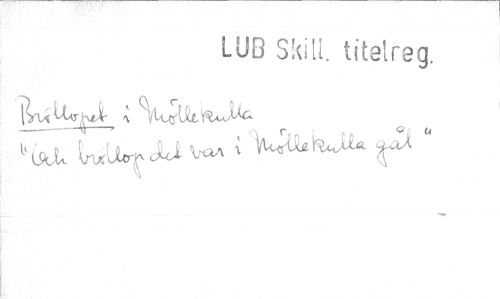 LUB Skill. titelreg.
Bröllopet i Möllekulla
"Och bröllop det var i Möllekulla gål"